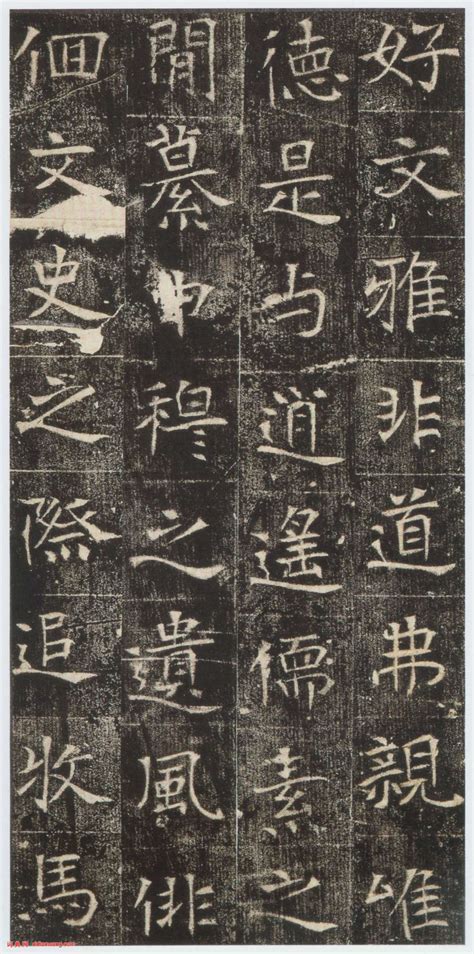 好文雅非道弗親唯
徳是与逍遙儒素之
閒慕申穆之遺風俳
佪文史之際追收馬